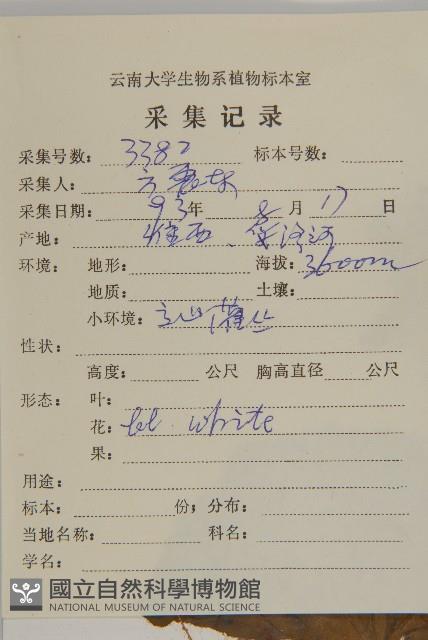 云南大学生物系植物标本室
采集记录
采集号数: 3382 标本号数:
采集人: 方震东
采集日期: 93年 月 17 日
产地: 维西、
环境: 地形: 海拔: 3600m
地质: 土壤:
小环境: 灌丛
性状:
高度: 公尺 胸高直径 公尺
形态: 叶:
花: fl. white
果:
用途:
标本: 份; 分布:
当地名称: 科名:
学名:
國立自然科學博物館
NATIONAL MUSEUM OF NATURAL SCIENCE